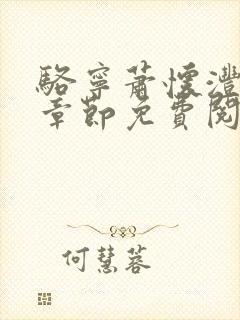 駱寧蕭懷灃
章節免費閱
何慧蓉